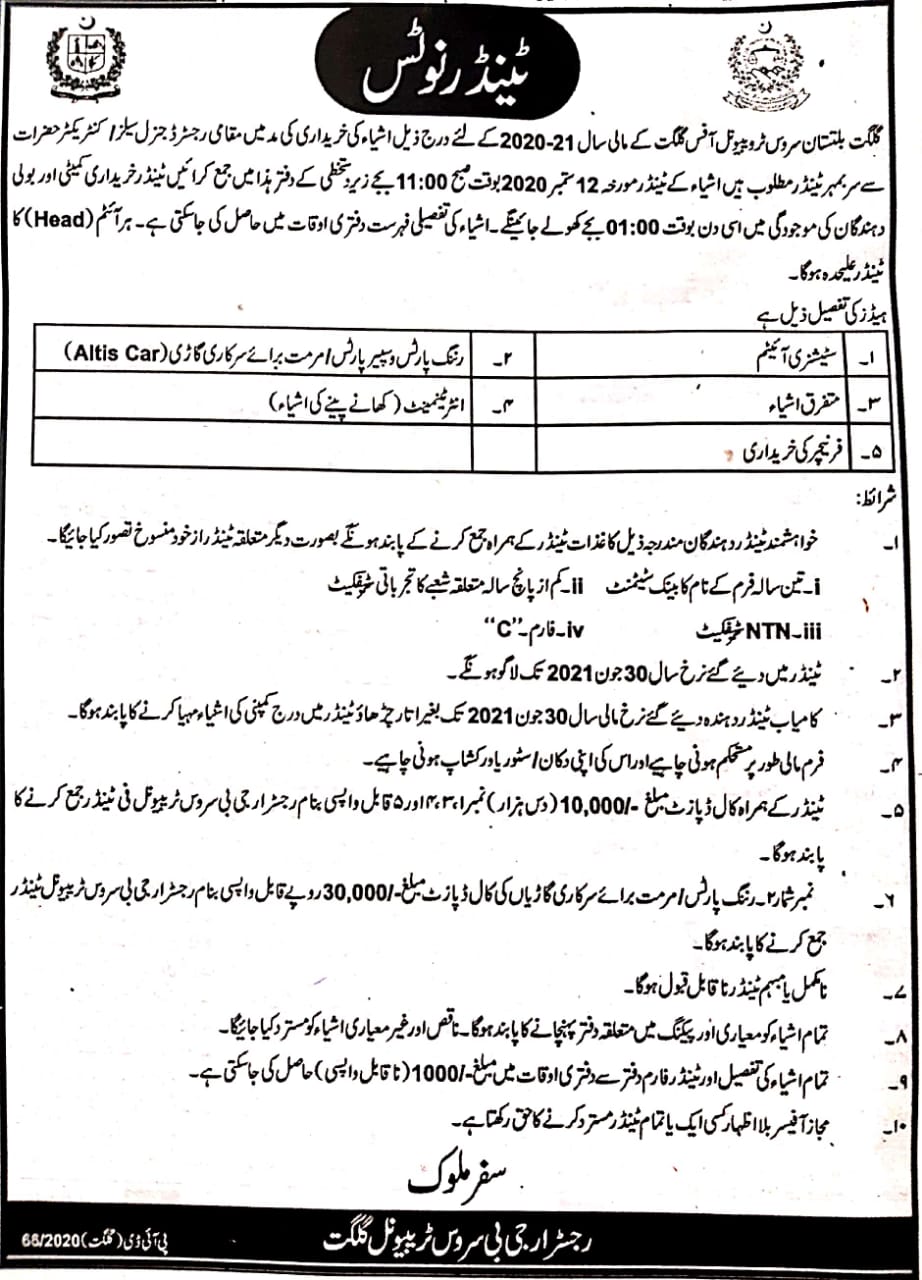 ٹینڈر نوٹس
گلگت بلتستان سروس ٹروبیونل آفس گلگت کے مالی سال 21-2020 کے لئے درج ذیل اشیاء کی خریداری کی مد میں مقامی رجسٹرڈ جنرل سیلز / کنٹریکٹر حضرات
سے سربمہر ٹینڈر مطلوب ہیں اشیاء کے ٹینڈر مورخہ 12 ستمبر 2020 بوقت صبح 11:00 بجے زیر دستخطی کے دفتر ہذا میں جمع کرائیں ٹینڈر خریداری کمیٹی اور بولی
دہندگان کی موجودگی میں اسی دن بوقت 01:00 بجے کھولے جائینگے۔ اشیاء کی تفصیلی فہرست دفتری اوقات میں حاصل کی جاسکتی ہے۔ ہر آئٹم (Head) کا
ٹینڈر علیحدہ ہوگا۔
ہیڈز کی تفصیل ذیل ہے
۱۔ سٹیشنری آئیٹم ۲۔ رننگ پارٹس و سپیر پارٹس / مرمت برائے سرکاری گاڑی (Altis Car)
۳۔ متفرق اشیاء ۴۔ انٹرٹینمینٹ (کھانے پینے کی اشیاء)
۵۔ فرنیچر کی خریداری
شرائط:
۱۔ خواہشمند ٹینڈر دہندگان مندرجہ ذیل کاغذات ٹینڈر کے ہمراہ جمع کرنے کے پابند ہونگے بصورت دیگر متعلقہ ٹینڈر از خود منسوخ تصور کیا جائیگا۔
i۔ تین سالہ فرم کے نام کا بینک سٹیٹمنٹ ii۔ کم از پانچ سالہ متعلقہ شعبے کا تجرباتی سرٹیفکیٹ
iii۔ NTN سرٹیفکیٹ iv۔ فارم۔ "C"
۲۔ ٹینڈر میں دیئے گئے نرخ سال 30 جون 2021 تک لاگو ہونگے۔
۳۔ کامیاب ٹینڈر دہندہ دیئے گئے نرخ مالی سال 30 جون 2021 تک بغیر اتار چڑھاؤ ٹینڈر میں درج کمپنی کی اشیاء مہیا کرنے کا پابند ہوگا۔
۴۔ فرم مالی طور پر مستحکم ہونی چاہیے اور اس کی اپنی دکان / سٹور یا ورکشاپ ہونی چاہیے۔
۵۔ ٹینڈر کے ہمراہ کال ڈپازٹ مبلغ -/10,000 (دس ہزار) نمبر ۱، ۳، ۴ اور ۵ قابل واپسی بنام رجسٹرار جی بی سروس ٹریبیونل فی ٹینڈر جمع کرنے کا
پابند ہوگا۔
۶۔ نمبر شمار ۲۔ رننگ پارٹس / مرمت برائے سرکاری گاڑیاں کی کال ڈپازٹ مبلغ -/30,000 روپے قابل واپسی بنام رجسٹرار جی بی سروس ٹریبیونل ٹینڈر
جمع کرنے کا پابند ہوگا۔
۷۔ نامکمل یا مبہم ٹینڈر نا قابل قبول ہوگا۔
۸۔ تمام اشیاء کو معیاری اور پیکنگ میں متعلقہ دفتر پہنچانے کا پابند ہوگا۔ ناقص اور غیر معیاری اشیاء کو مسترد کیا جائیگا۔
۹۔ تمام اشیاء کی تفصیل اور ٹینڈر فارم دفتر سے دفتری اوقات میں مبلغ -/1000 (نا قابل واپسی) حاصل کی جاسکتی ہے۔
۱۰۔ مجاز آفیسر بلا اظہار کسی ایک یا تمام ٹینڈر مسترد کرنے کا حق رکھتا ہے۔
سفر ملوک
رجسٹرار جی بی سروس ٹریبیونل گلگت
پی آئی ڈی (گلگت) 66/2020